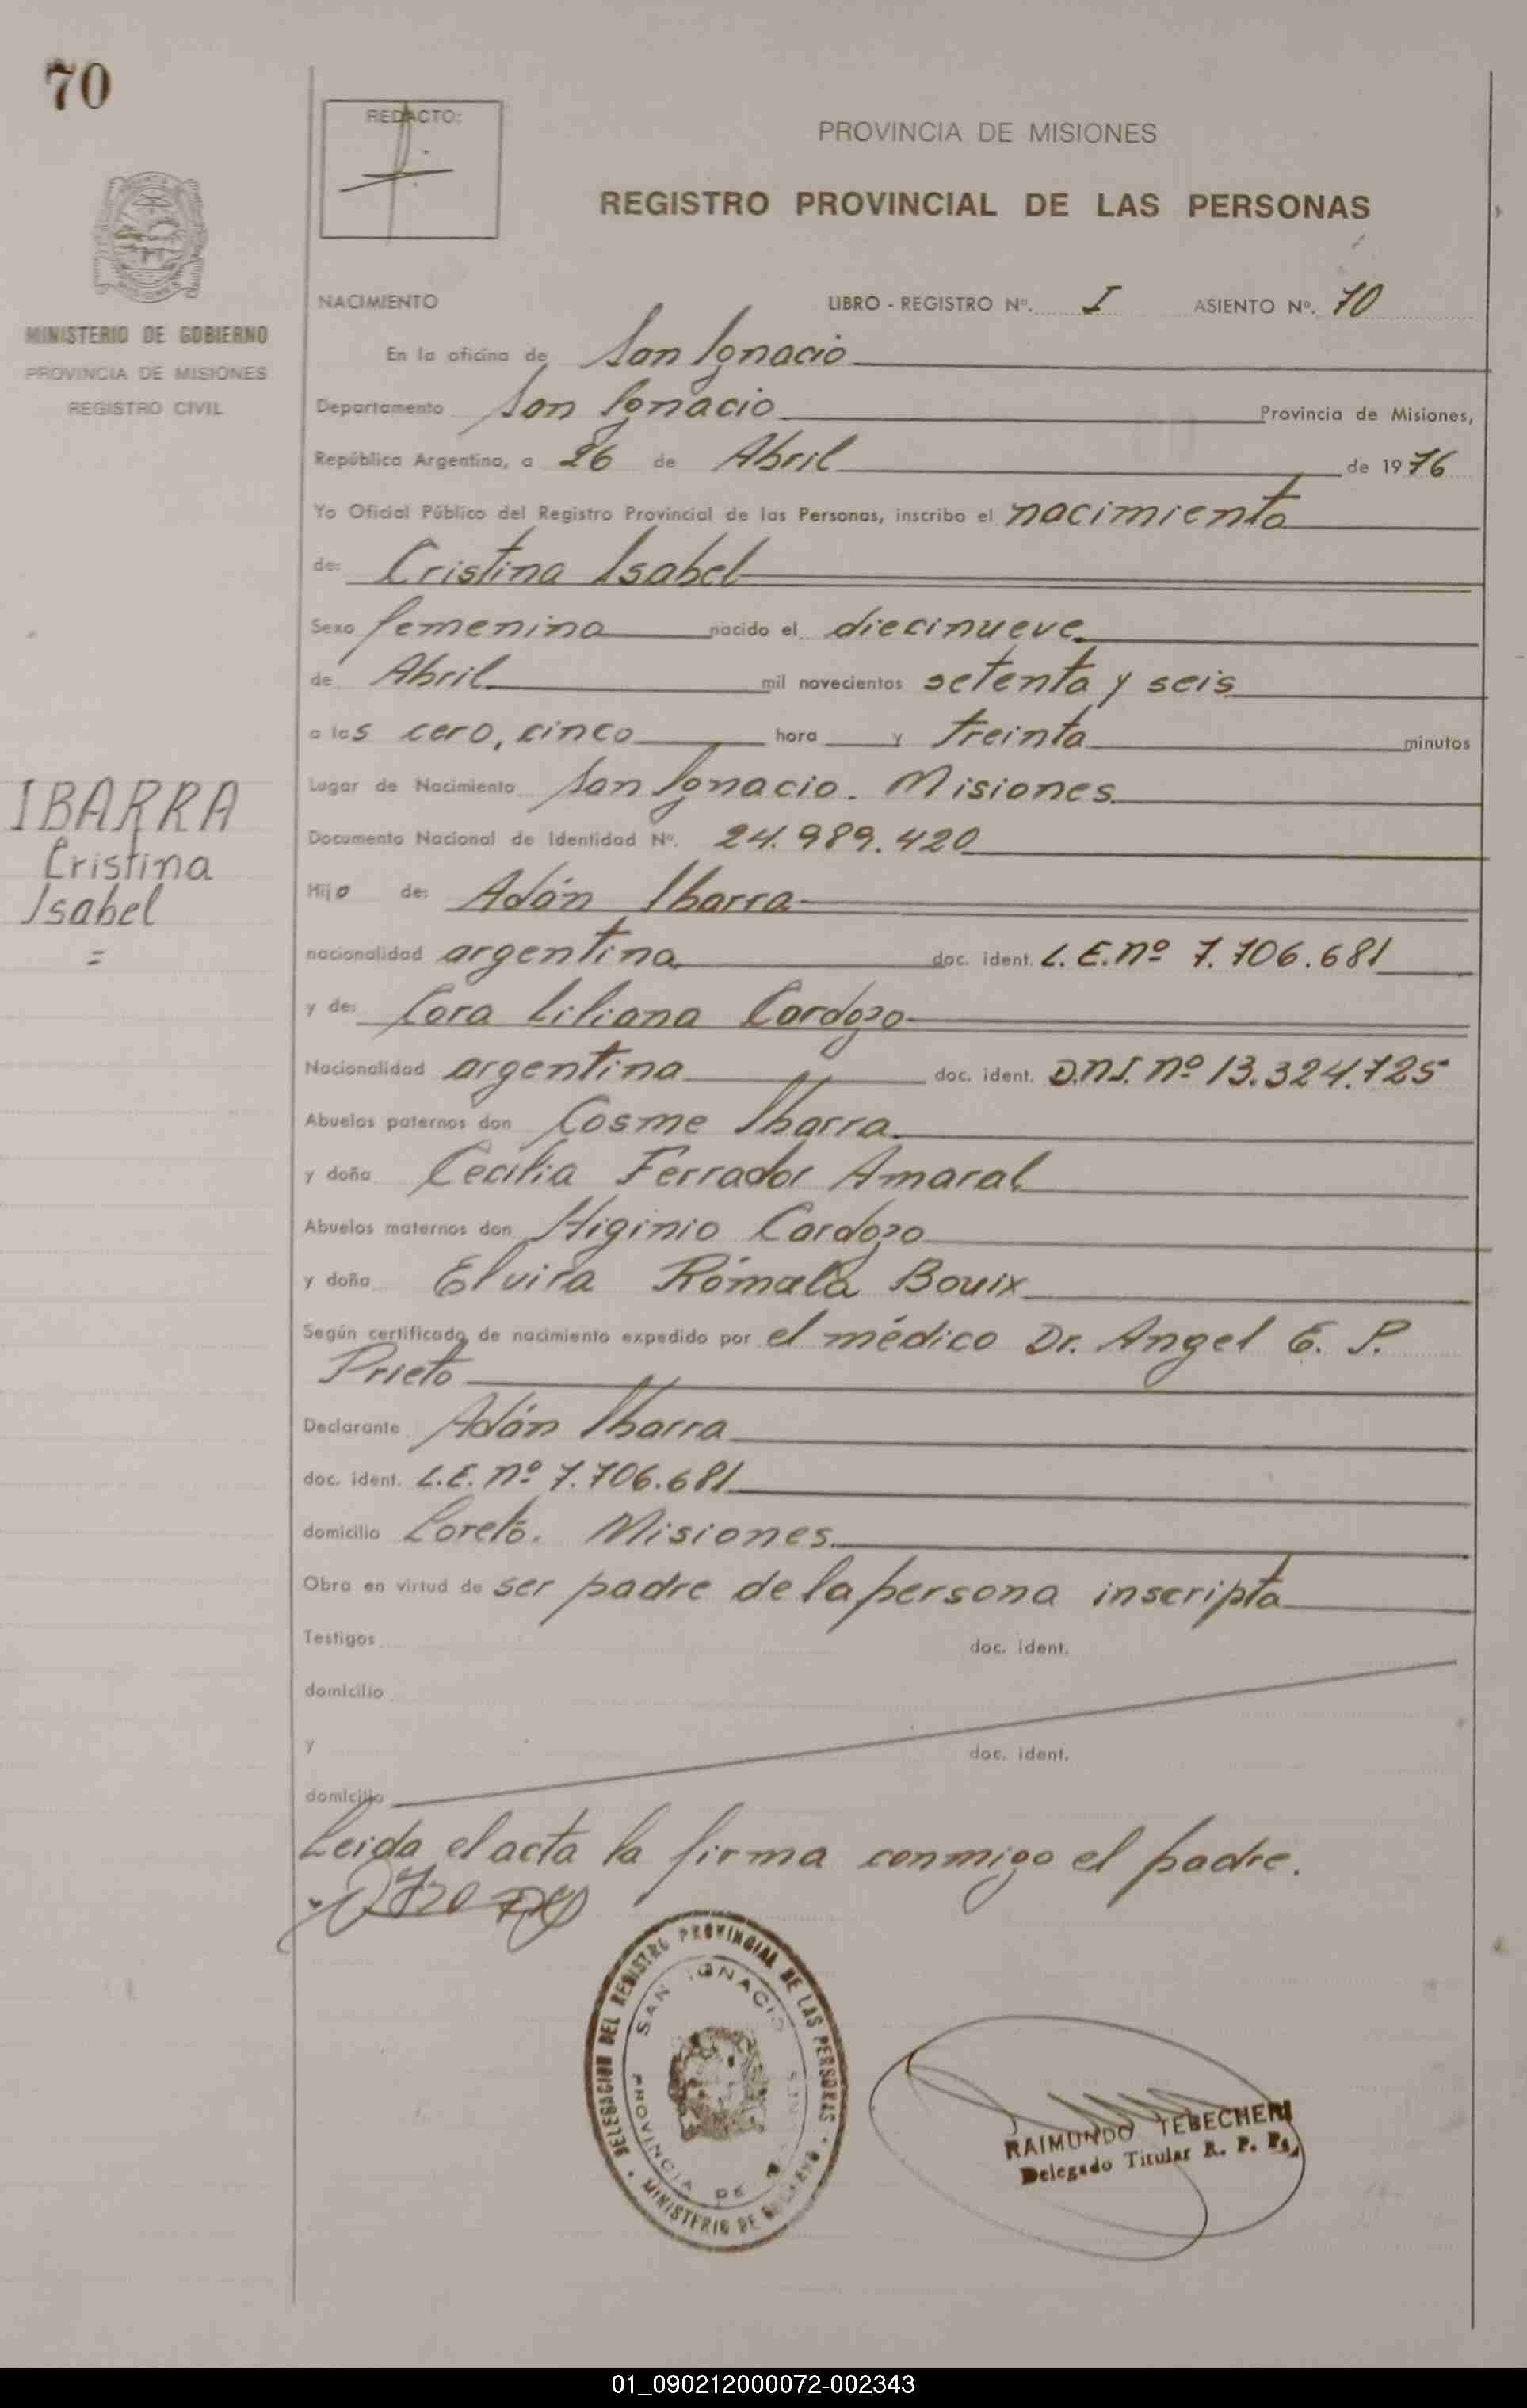 70
REDACTO:
PROVINCIA DE MISIONES
REGISTRO PROVINCIAL DE LAS PERSONAS
MINISTERIO DE GOBIERNO
PROVINCIA DE MISIONES
REGISTRO CIVIL
NACIMIENTO LIBRO - REGISTRO Nº. I ASIENTO Nº. 70
En la oficina de San Ignacio
Departamento San Ignacio Provincia de Misiones,
República Argentina, a 26 de Abril de 1976
Yo Oficial Público del Registro Provincial de las Personas, inscribo el nacimiento
de: Cristina Isabel
Sexo femenino nacido el diecinueve
de Abril mil novecientos setenta y seis
a las cero, cinco hora y treinta minutos
Lugar de Nacimiento San Ignacio. Misiones
Documento Nacional de Identidad Nº. 24.989.420
IBARRA
Cristina
Isabel
=
Hija de: Adán Ibarra
nacionalidad argentina doc. ident. L.E. nº 7.706.681
y de: Cora Liliana Cardozo
Nacionalidad argentina doc. ident. D.N.I. nº 13.324.725
Abuelos paternos don Cosme Ibarra
y doña Cecilia Ferrador Amaral
Abuelos maternos don Higinio Cardozo
y doña Elvira Rómala Bouix
Según certificado de nacimiento expedido por el médico Dr. Angel E. P.
Prieto
Declarante Adán Ibarra
doc. ident. L.E. nº 7.706.681
domicilio Loreto. Misiones
Obra en virtud de ser padre de la persona inscripta
Testigos doc. ident.
domicilio
y doc. ident.
domicilio
Leida el acta la firma conmigo el padre.
DELEGACION DEL REGISTRO PROVINCIAL DE LAS PERSONAS
SAN IGNACIO
PROVINCIA DE
MINISTERIO DE GOBIERNO
RAIMUNDO TEBECHERI
Delegado Titular R. P. Ps.
01_090212000072-002343